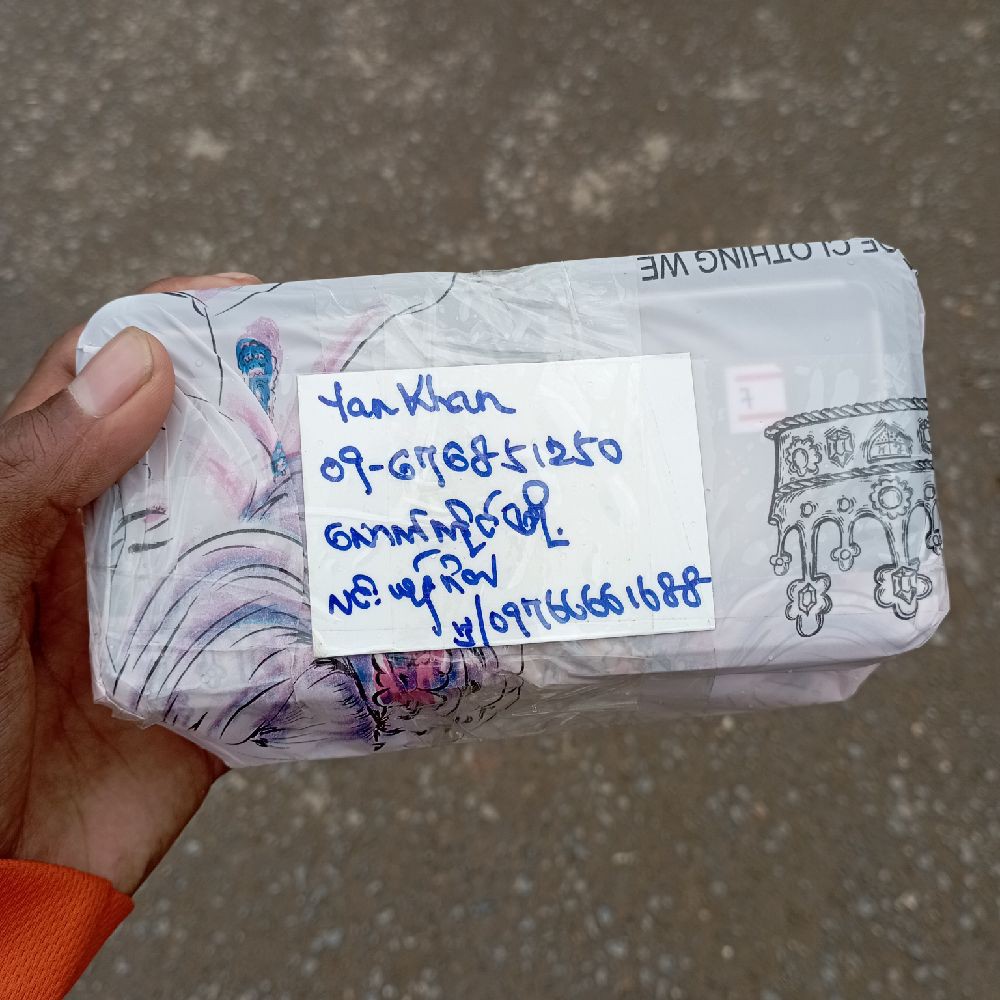 OE CLOTHING WE
7
Yan Khan
09-676851250
လောက်ကိုင်မြို့
မှ/09766661688